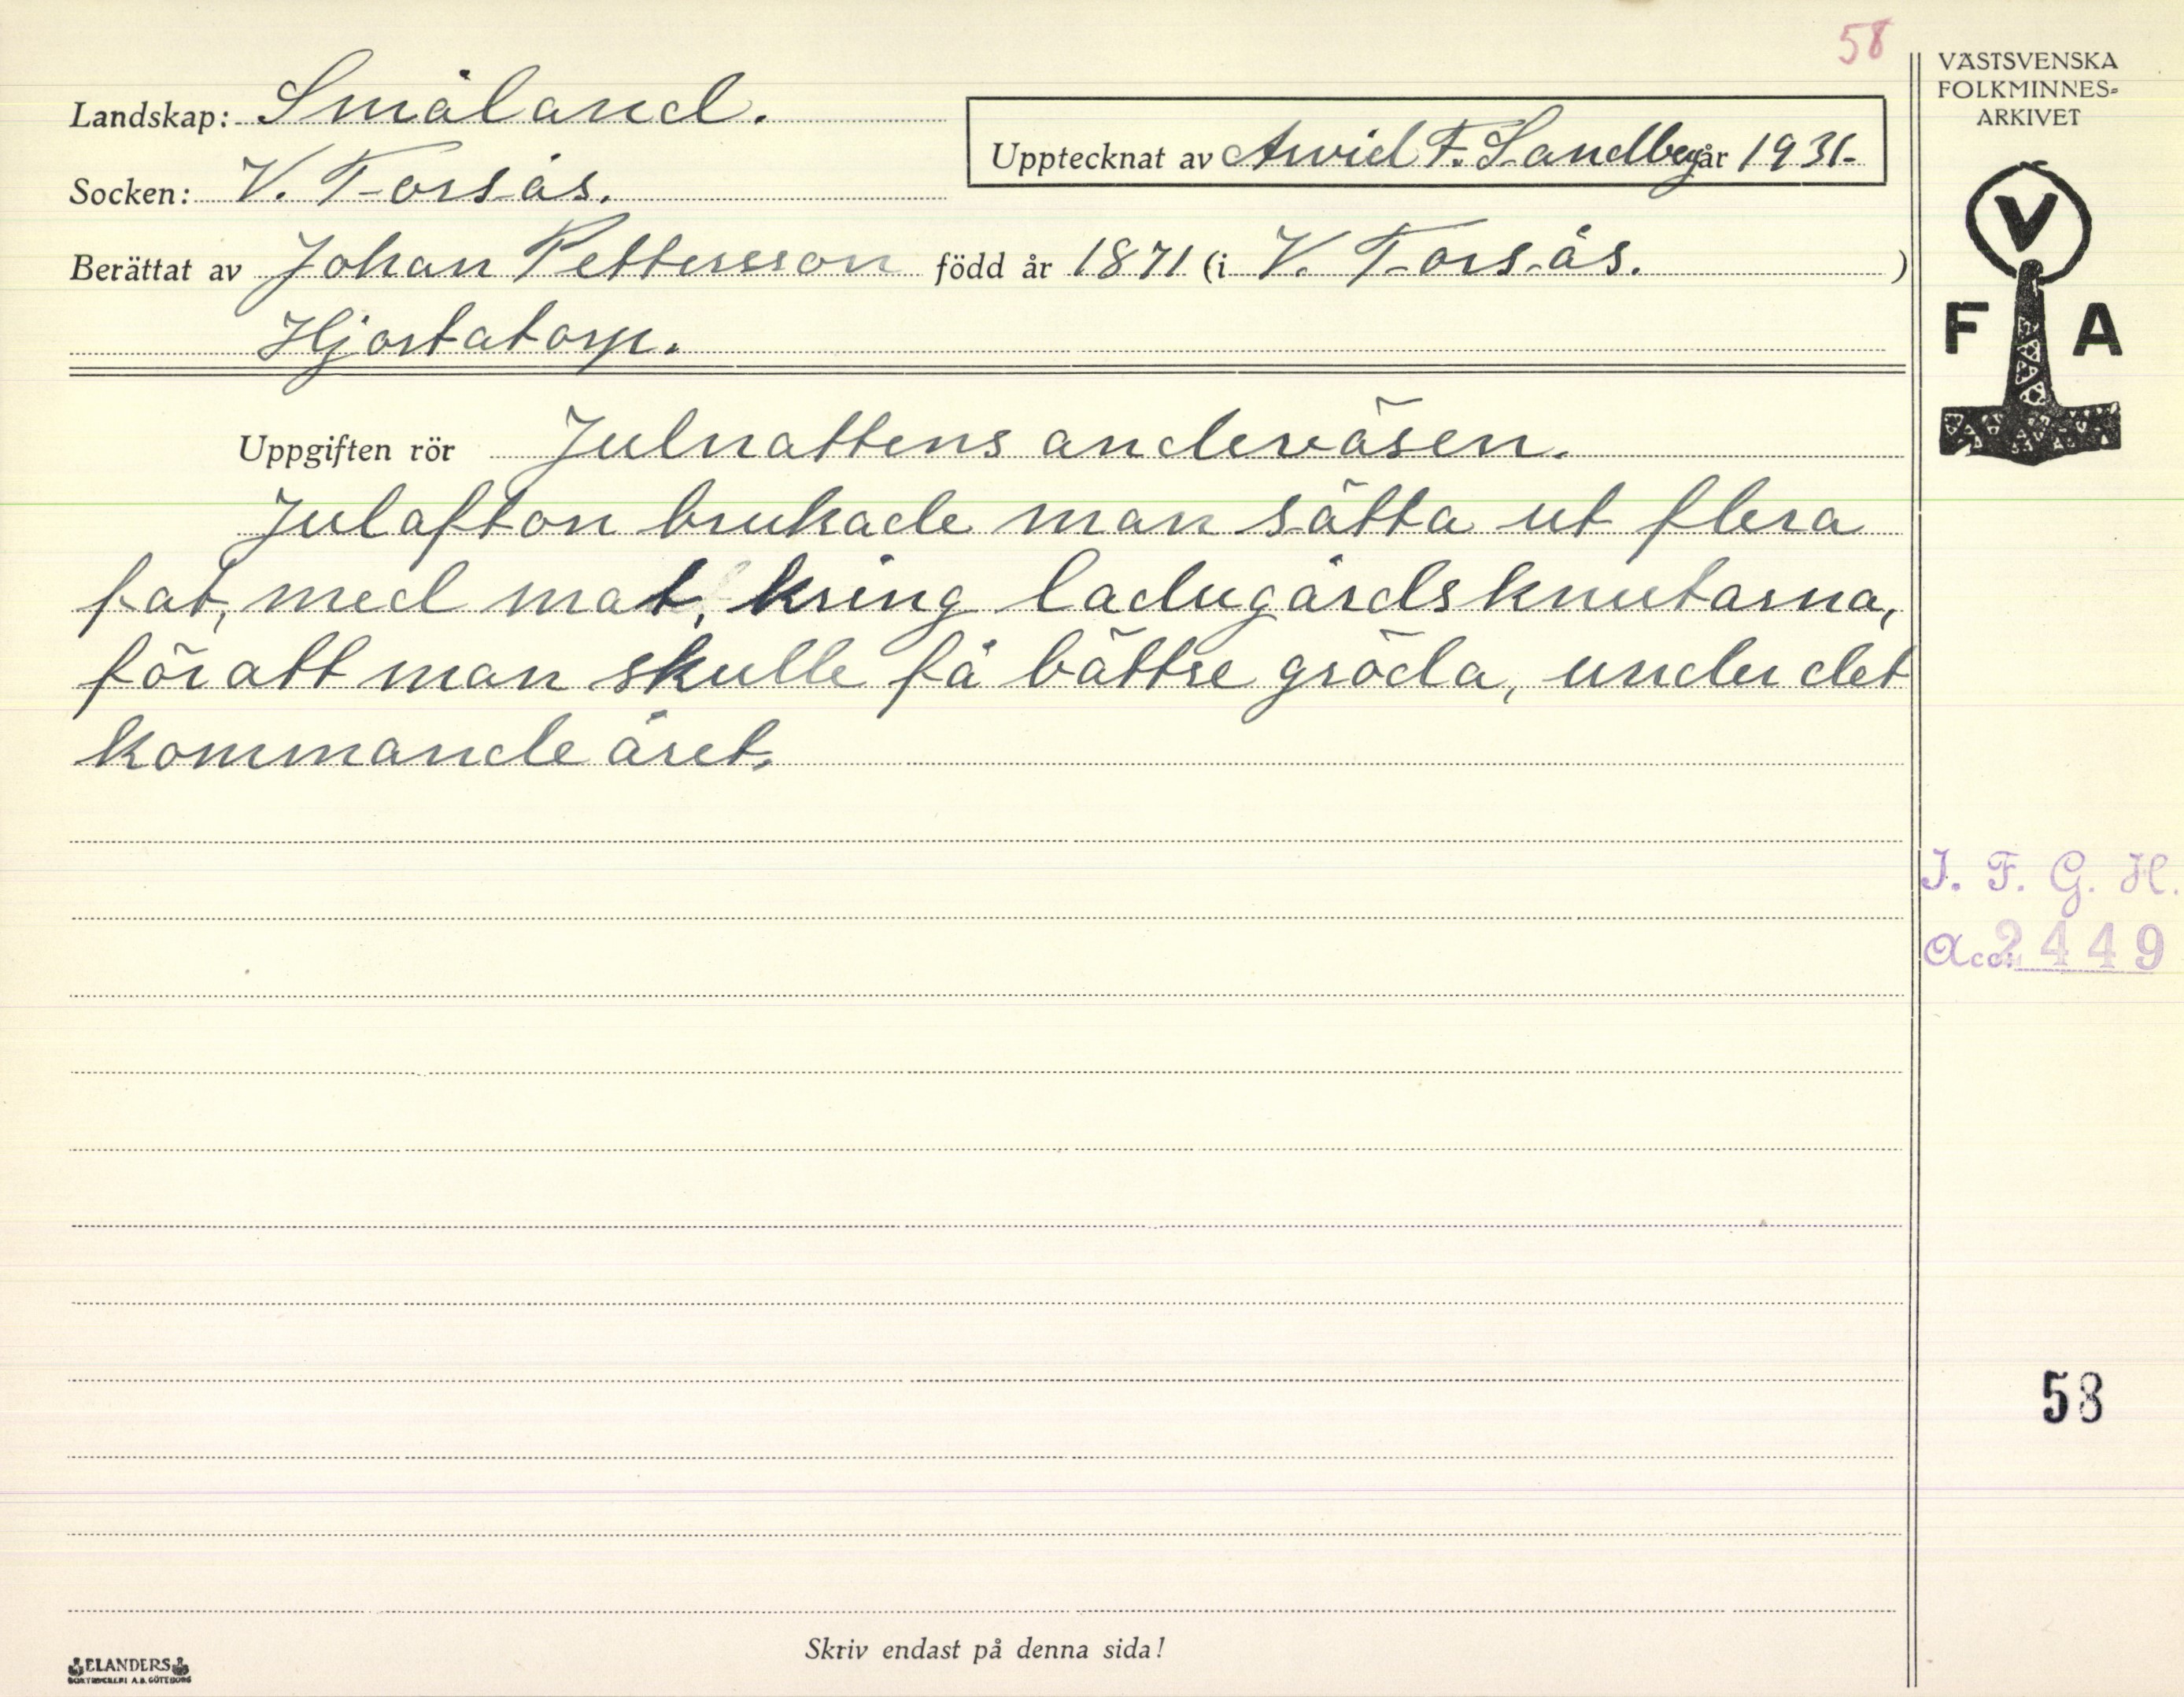 58
VÄSTSVENSKA
FOLKMINNES-
ARKIVET
Landskap: Småland.
Upptecknat av Arvid F. Sandberg år 1931.
Socken: V. Torsås.
Berättat av Johan Pettersson född år 1871 (i V. Torsås. )
Hjortatorp.
V
F A
Uppgiften rör Julnattens andeväsen.
Julafton brukade man sätta ut flera
fat, med mat, kring ladugårdsknutarna,
för att man skulle få bättre gröda, under det
kommande året.
I. F. G. H.
Acc. 2449
58
Skriv endast på denna sida!
ELANDERS
BOKTRYCKERI A.B. GÖTEBORG